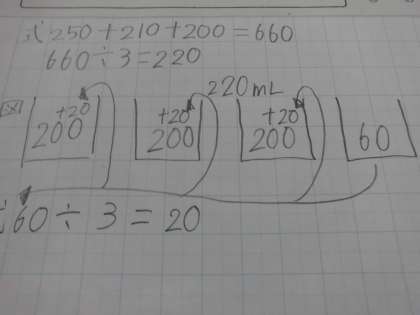 式 250+210+200=660
660÷3=220
220mL
図 +20 +20 +20
200 200 200 60
式 60÷3=20